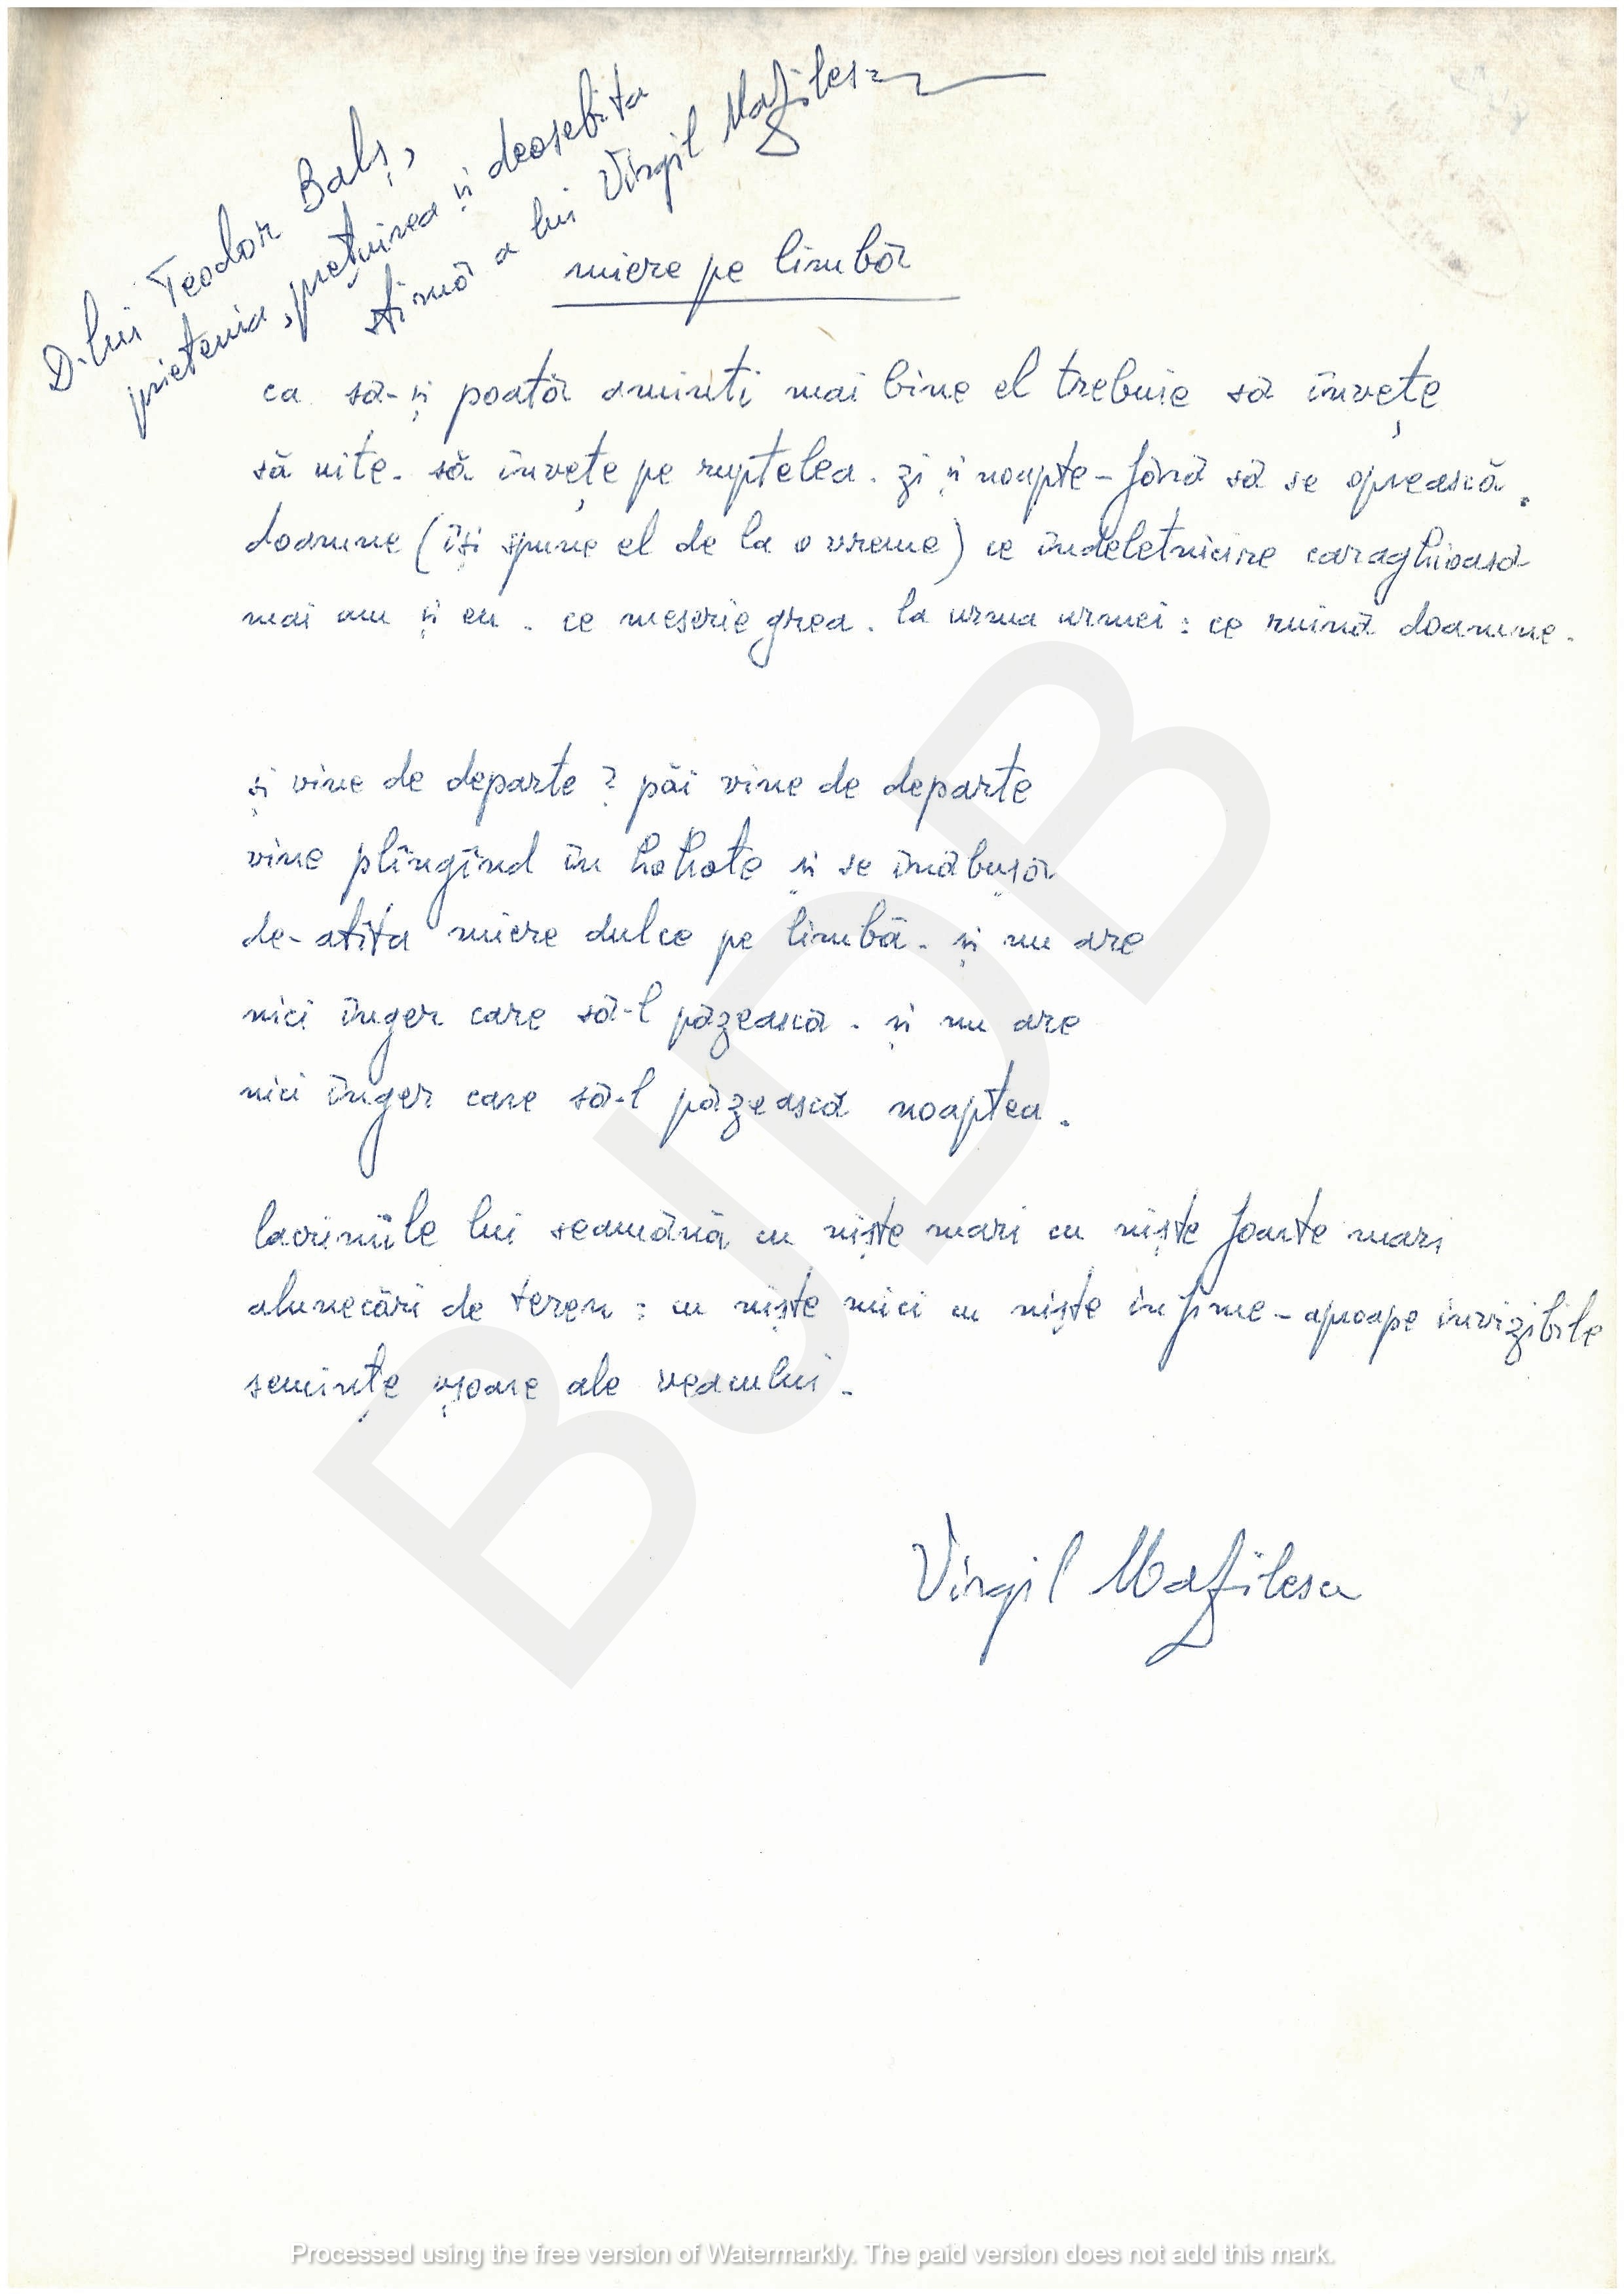 D-lui Teodor Balș,
prietenia, prețuirea și deosebita
stimă a lui Virgil Mazilescu
miere pe limbă
ca să-și poată aminti mai bine el trebuie să învețe
să uite. să învețe pe ruptelea. zi și noapte - fără să se oprească.
doamne (își spune el de la o vreme) ce îndeletnicire caraghioasă
mai am și eu. ce meserie grea. la urma urmei: ce ruină doamne.
și vine de departe? păi vine de departe
vine plîngînd în hohote și se înăbușă
de-atîta miere dulce pe limbă. și nu are
nici înger care să-l păzească. și nu are
nici înger care să-l păzească noaptea.
lacrimile lui seamănă cu niște mari cu niște foarte mari
alunecări de teren: cu niște mici cu niște infime - aproape invizibile
semințe ușoare ale neamului.
Virgil Mazilescu
BJDB
Processed using the free version of Watermarkly. The paid version does not add this mark.